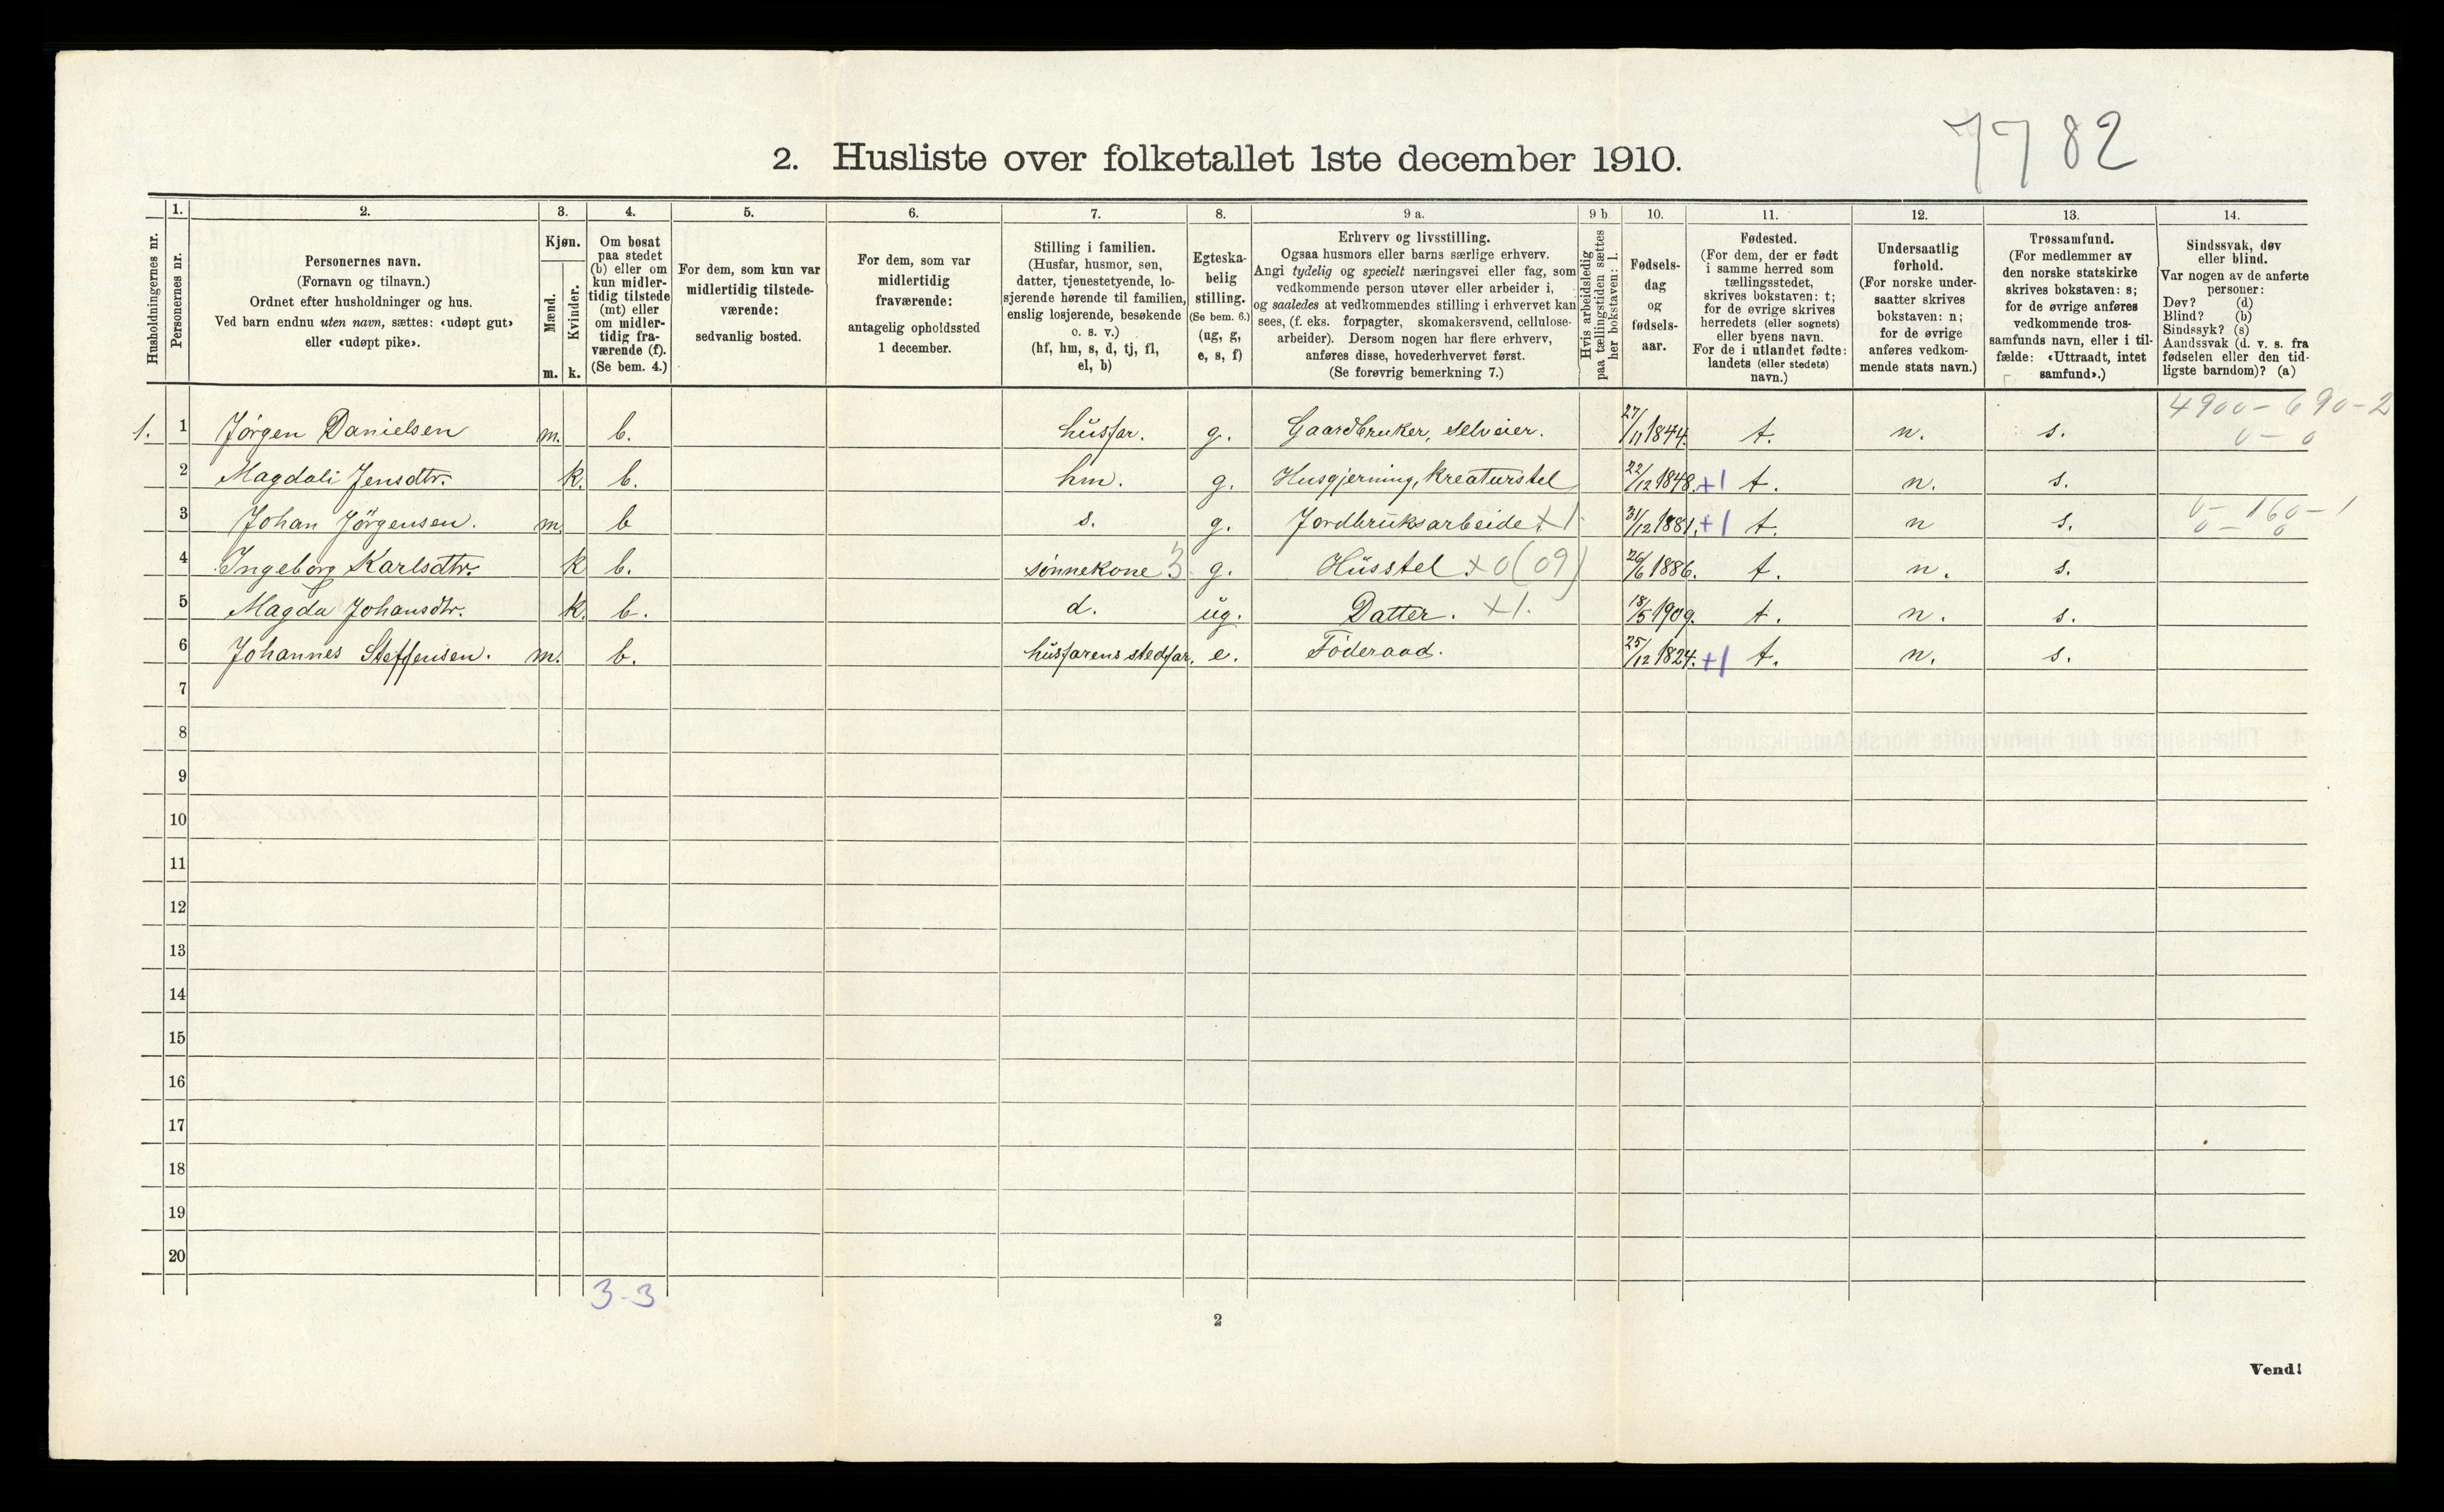 7782
2. Husliste over folketallet 1ste december 1910.
Husholdningernes nr.
1.
Personernes nr.
2.
Personernes navn.
(Fornavn og tilnavn.)
Ordnet efter husholdninger og hus.
Ved barn endnu uten navn, sættes: «udøpt gut»
eller «udøpt pike».
3.
Kjøn.
Mænd.
Kvinder.
m. k.
4.
Om bosat
paa stedet
(b) eller om
kun midler-
tidig tilstede
(mt) eller
om midler-
tidig fra-
værende (f).
(Se bem. 4.)
5.
For dem, som kun var
midlertidig tilstede-
værende:
sedvanlig bosted.
6.
For dem, som var
midlertidig
fraværende:
antagelig opholdssted
1 december.
7.
Stilling i familien.
(Husfar, husmor, søn,
datter, tjenestetyende, lo-
sjerende hørende til familien,
enslig losjerende, besøkende
o. s. v.)
(hf, hm, s, d, tj, fl,
el, b)
8.
Egteska-
belig
stilling.
(Se bem. 6.)
(ug, g,
e, s, f)
9 a.
Erhverv og livsstilling.
Ogsaa husmors eller barns særlige erhverv.
Angi tydelig og specielt næringsvei eller fag, som
vedkommende person utøver eller arbeider i,
og saaledes at vedkommendes stilling i erhvervet kan
sees, (f. eks. forpagter, skomakersvend, cellulose-
arbeider). Dersom nogen har flere erhverv,
anføres disse, hovederhvervet først.
(Se forøvrig bemerkning 7.)
9 b
Hvis arbeidsledig
paa tællingstiden sættes
her bokstaven: l.
10.
Fødsels-
dag
og
fødsels-
aar.
11.
Fødested.
(For dem, der er født
i samme herred som
tællingsstedet,
skrives bokstaven: t;
for de øvrige skrives
herredets (eller sognets)
eller byens navn.
For de i utlandet fødte:
landets (eller stedets)
navn.)
12.
Undersaatlig
forhold.
(For norske under-
saatter skrives
bokstaven: n;
for de øvrige
anføres vedkom-
mende stats navn.)
13.
Trossamfund.
(For medlemmer av
den norske statskirke
skrives bokstaven: s;
for de øvrige anføres
vedkommende tros-
samfunds navn, eller i til-
fælde: «Uttraadt, intet
samfund».)
14.
Sindssvak, døv
eller blind.
Var nogen av de anførte
personer:
Døv? (d)
Blind? (b)
Sindssyk? (s)
Aandssvak (d. v. s. fra
fødselen eller den tid-
ligste barndom)? (a)
4900 - 690 - 2
1. 1 Jörgen Danielsen m. b. husfar. g. Gaardbruker, selveier. 27/11 1844. t. n. s. 0 - 0
2 Magdali Jensdtr. k. b. hm. g. Husgjerning, kreaturstel 22/12 1848. +1 t. n. s.
3 Johan Jörgensen. m. b s. g. Jordbruksarbeide. X1. 31/12 1881. +1 t. n s. 0 - 160 - 1
0 - 0
4 Ingeborg Karlsdtr. k b. sønnekone 3 g. Husstel X0(09) 26/6 1886. t. n. s.
5 Magda Johansdtr. k. b. d. ug. Datter. X1. 18/5 1909. t. n. s.
6 Johannes Steffensen. m. b. husfarens stedfar. e. Föderaad. 25/12 1824. +1 t. n. s.
7
8
9
10
11
12
13
14
15
16
17
18
19
20
3-3
2
Vend!